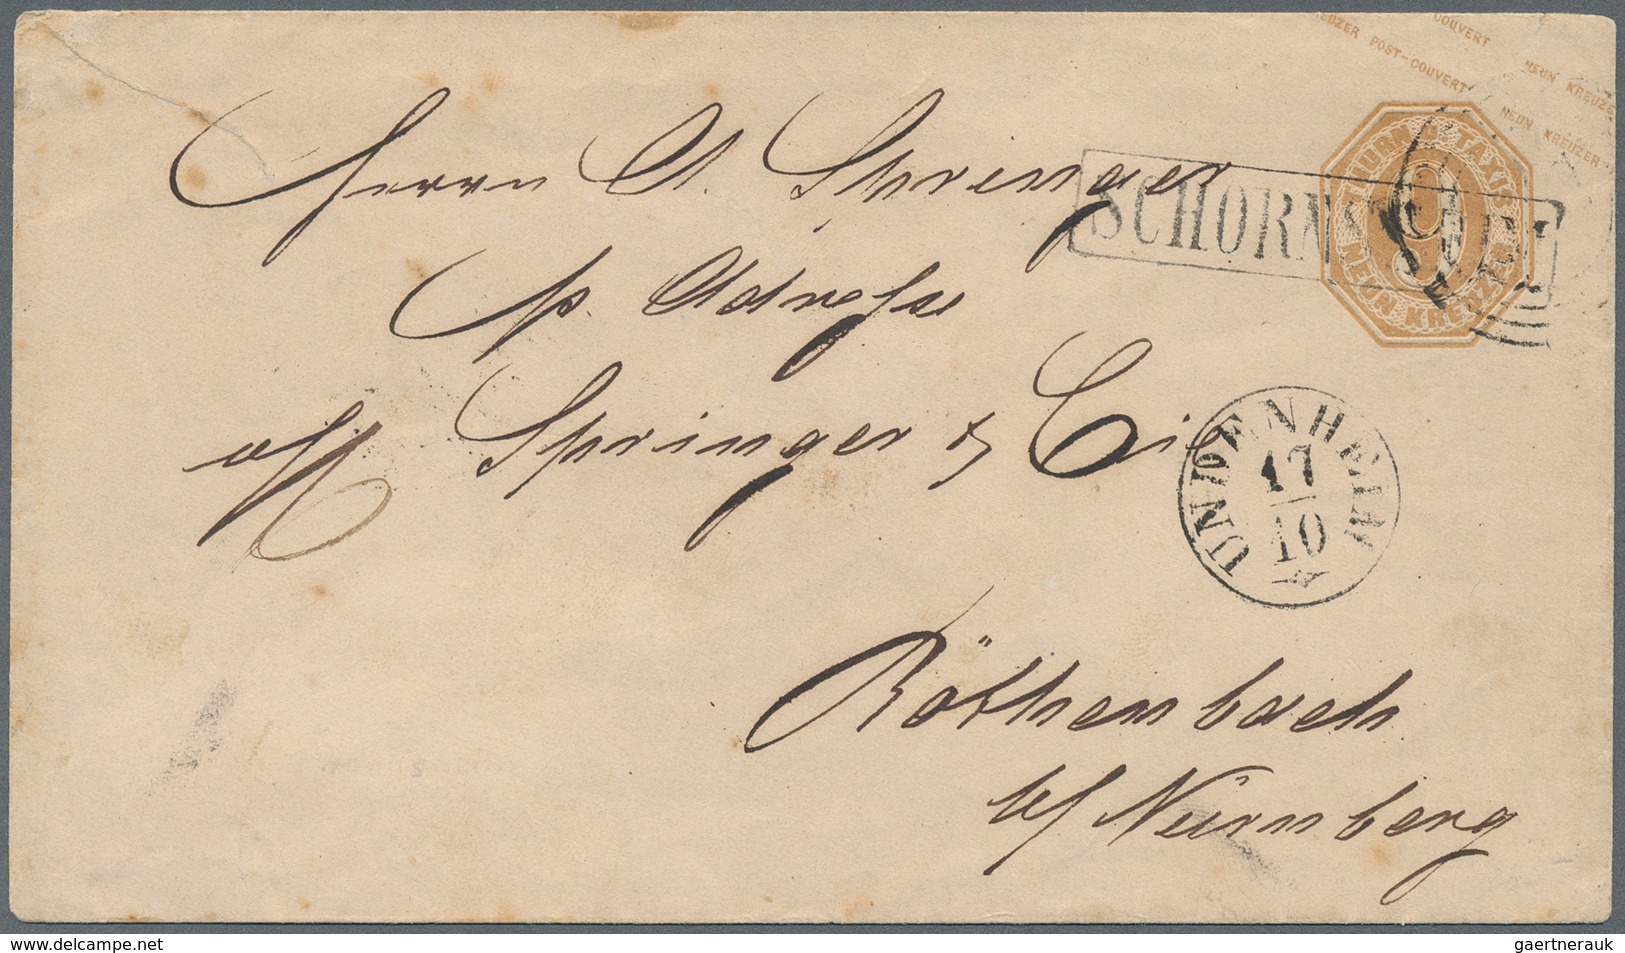 COUVERT NEUN KREUZER
KREUZER POST-COUVERT NEUN KREUZER
THURN U. TAXIS
9
NEUN KREUZER
SCHORN
Herrn A. Springer
p. Adresse
Springer & Cie
UNDENHEIM
17
10
Röthenbach
b/ Nürnberg
gaertnerauk
www.delcampe.net